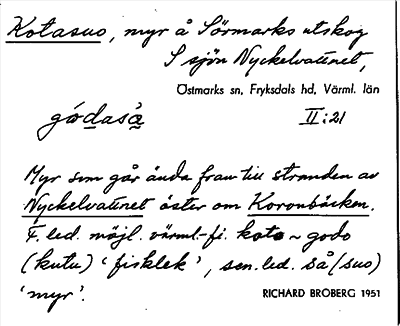 Kotasuo, myr å Sörmarks utskog
S sjön Nyckelvattnet,
Östmarks sn, Fryksdals hd, Värml. län
gódasà̀ II:21
Myr som går ända fram till stranden av
Nyckelvattnet öster om Koronbäcken.
F. led. möjl. värml.-fi. koto ~ godo
(kutu) 'fisklek', sen. led. så (suo)
'myr'.
RICHARD BROBERG 1951